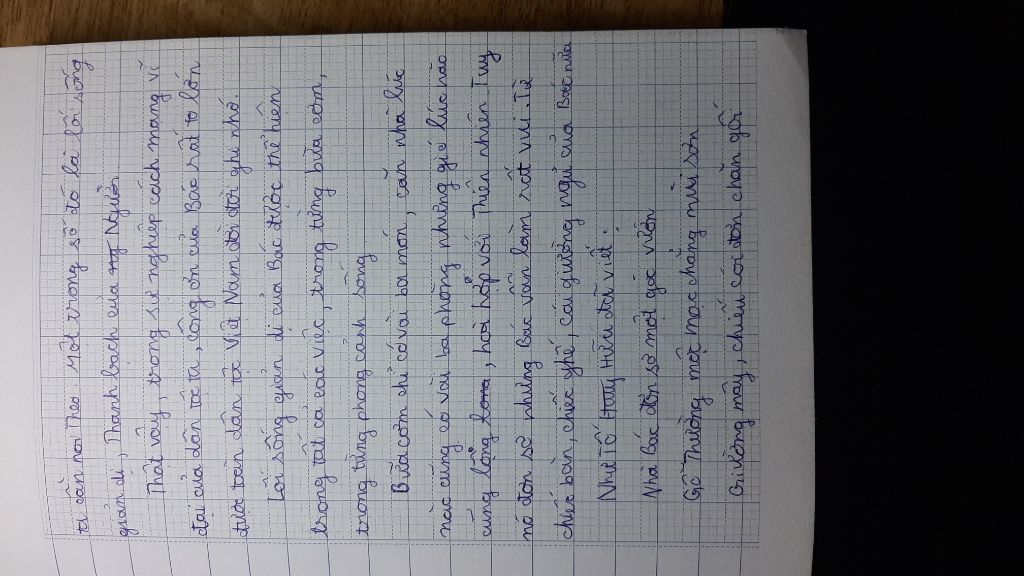 ta cần noi Theo. Một trong số đó là lối sống
giản dị, Thanh bạch của Người
Thật vậy, trong sự nghiệp cách mạng vĩ
đại của dân tộc ta, công ơn của Bác rất to lớn
được toàn dân tộc Việt Nam đời đời ghi nhớ.
Lối sống giản dị của Bác được thể hiện
trong tất cả các việc, trong từng bữa cơm,
trong từng phong cảnh sống
Bữa cơm chỉ có vài ba món, căn nhà lúc
nào cũng có vài ba phòng nhưng gió lúc nào
cũng lộng, hoà hợp với Thiên nhiên Tuy
nó đơn sơ nhưng Bác vẫn lấm rất vui. Từ
chiếc bàn, chiếc ghế, cái giường ngủ của Bác nữa
Như Tố Hữu đã viết:
Nhà Bác đơn sơ một góc vườn
Gỗ Thường mộc mạc chẳng mùi sơn
Giường mây, chiếu cói đơn chăn gối